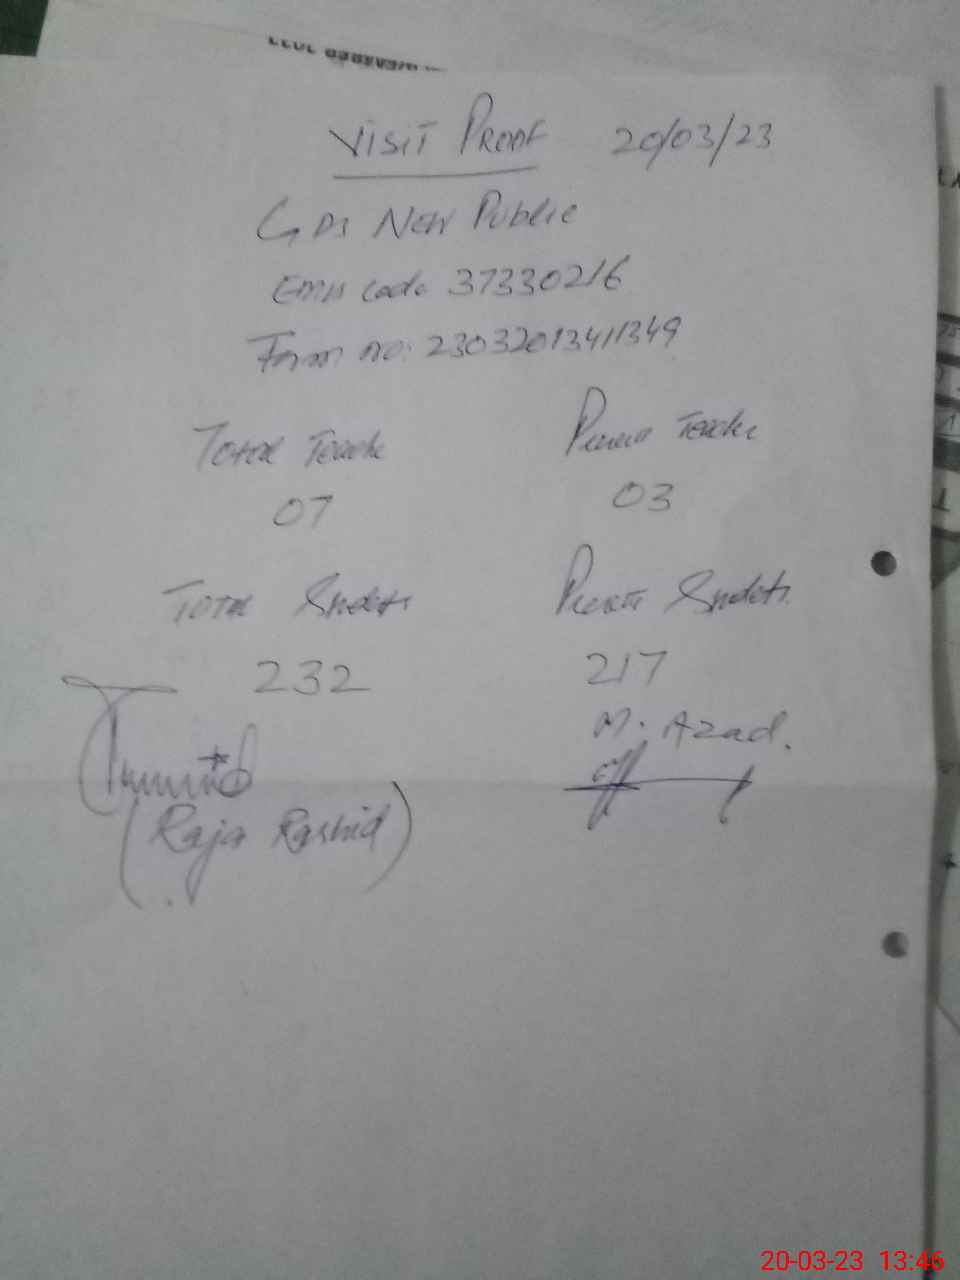 VISIT PROOF 20/03/23
GPS New Public
Emis code 37330216
Form no: 23032013411349
Total Teache Presen Teache
07 03
Total Students Present Students
232 217
M. Azad.
(Raja Rashid)
20-03-23 13:46